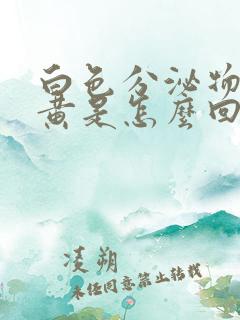 白色分泌物
黄是怎麼回
凌朔
未经同意禁止转载